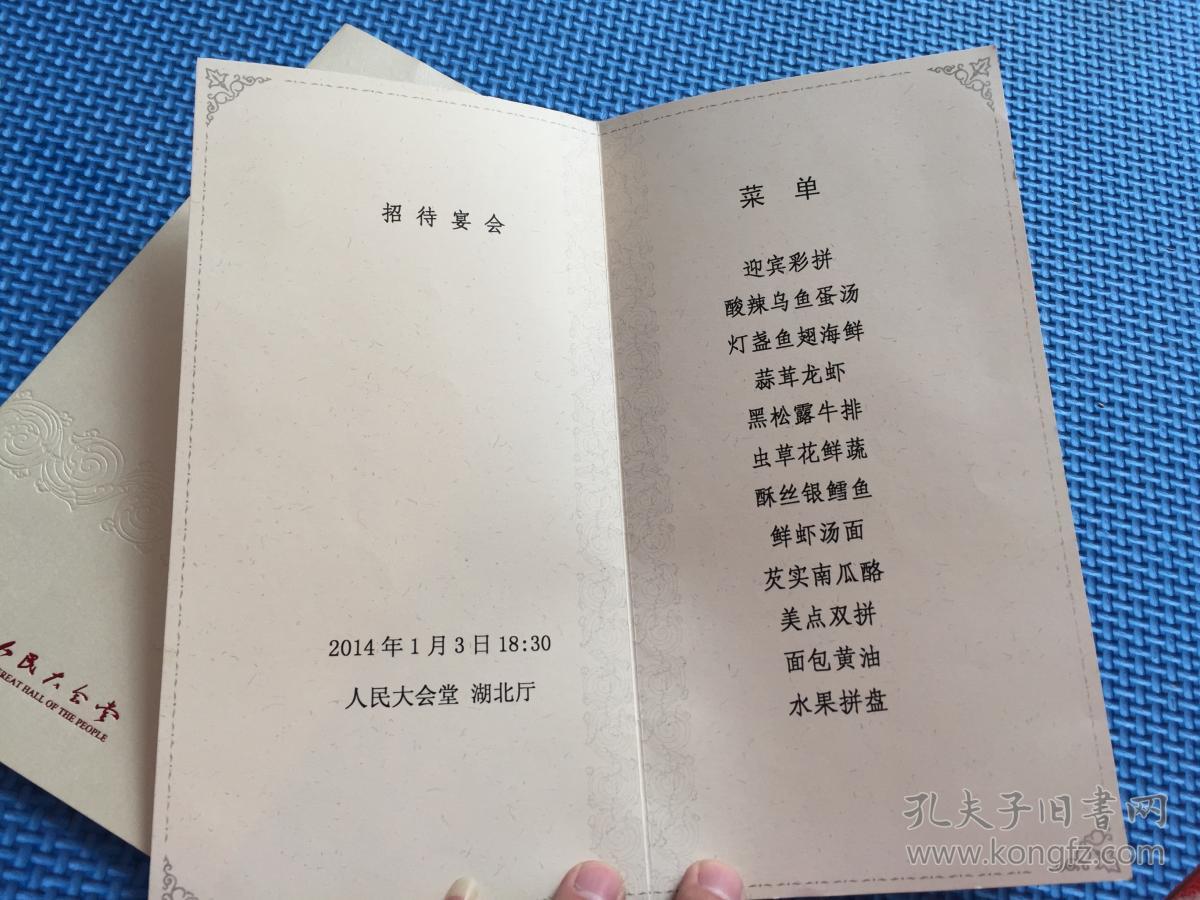 招待宴会
2014年1月3日18:30
人民大会堂 湖北厅
菜单
迎宾彩拼
酸辣乌鱼蛋汤
灯盏鱼翅海鲜
蒜茸龙虾
黑松露牛排
虫草花鲜蔬
酥丝银鳕鱼
鲜虾汤面
芡实南瓜酪
美点双拼
面包黄油
水果拼盘
人民大会堂
GREAT HALL OF THE PEOPLE
孔夫子旧书网
www.kongfz.com